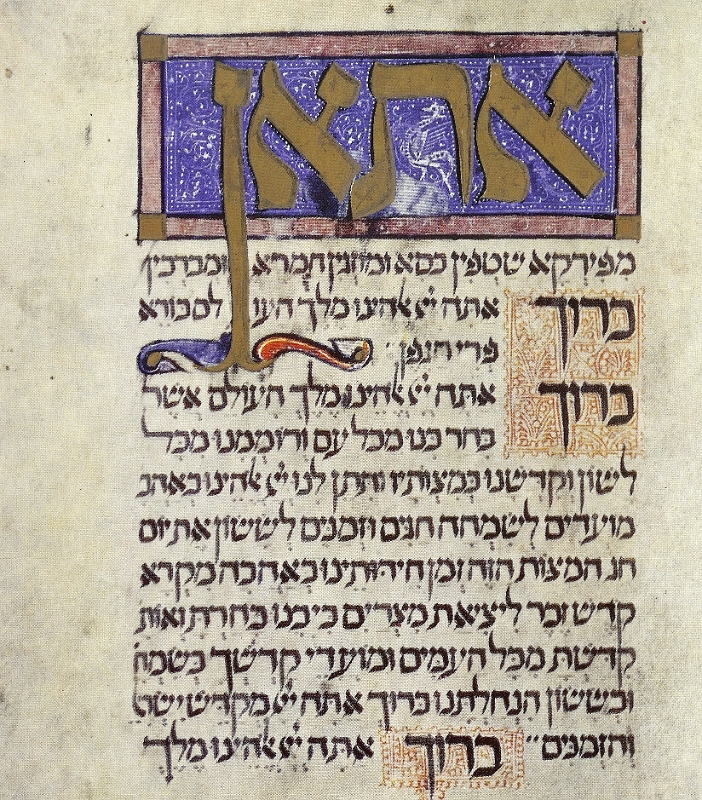 אתאן
מפירקא שטפין כסא ומוזגין חמרא ומברכין
ברוך אתה יי אלהינו מלך העו לם בורא
פרי הגפן
ברוך אתה יי אלהינו מלך העולם אשר
בחר בנו מכל עם ורוממנו מכל
לשון וקדשנו במצותיו ותתן לנו יי אלהינו באהב
מועדים לשמחה חגים וזמנים לששון את יום
חג המצות הזה זמן חירותינו באהבה מקרא
קדש זכר ליציאת מצרים כי בנו בחרת ואות
קדשת מכל העמים ומועדי קדשך בשמח
ובששון הנחלתנו ברוך אתה יי מקדש ישר
והזמנים ברוך אתה יי אלהינו מלך